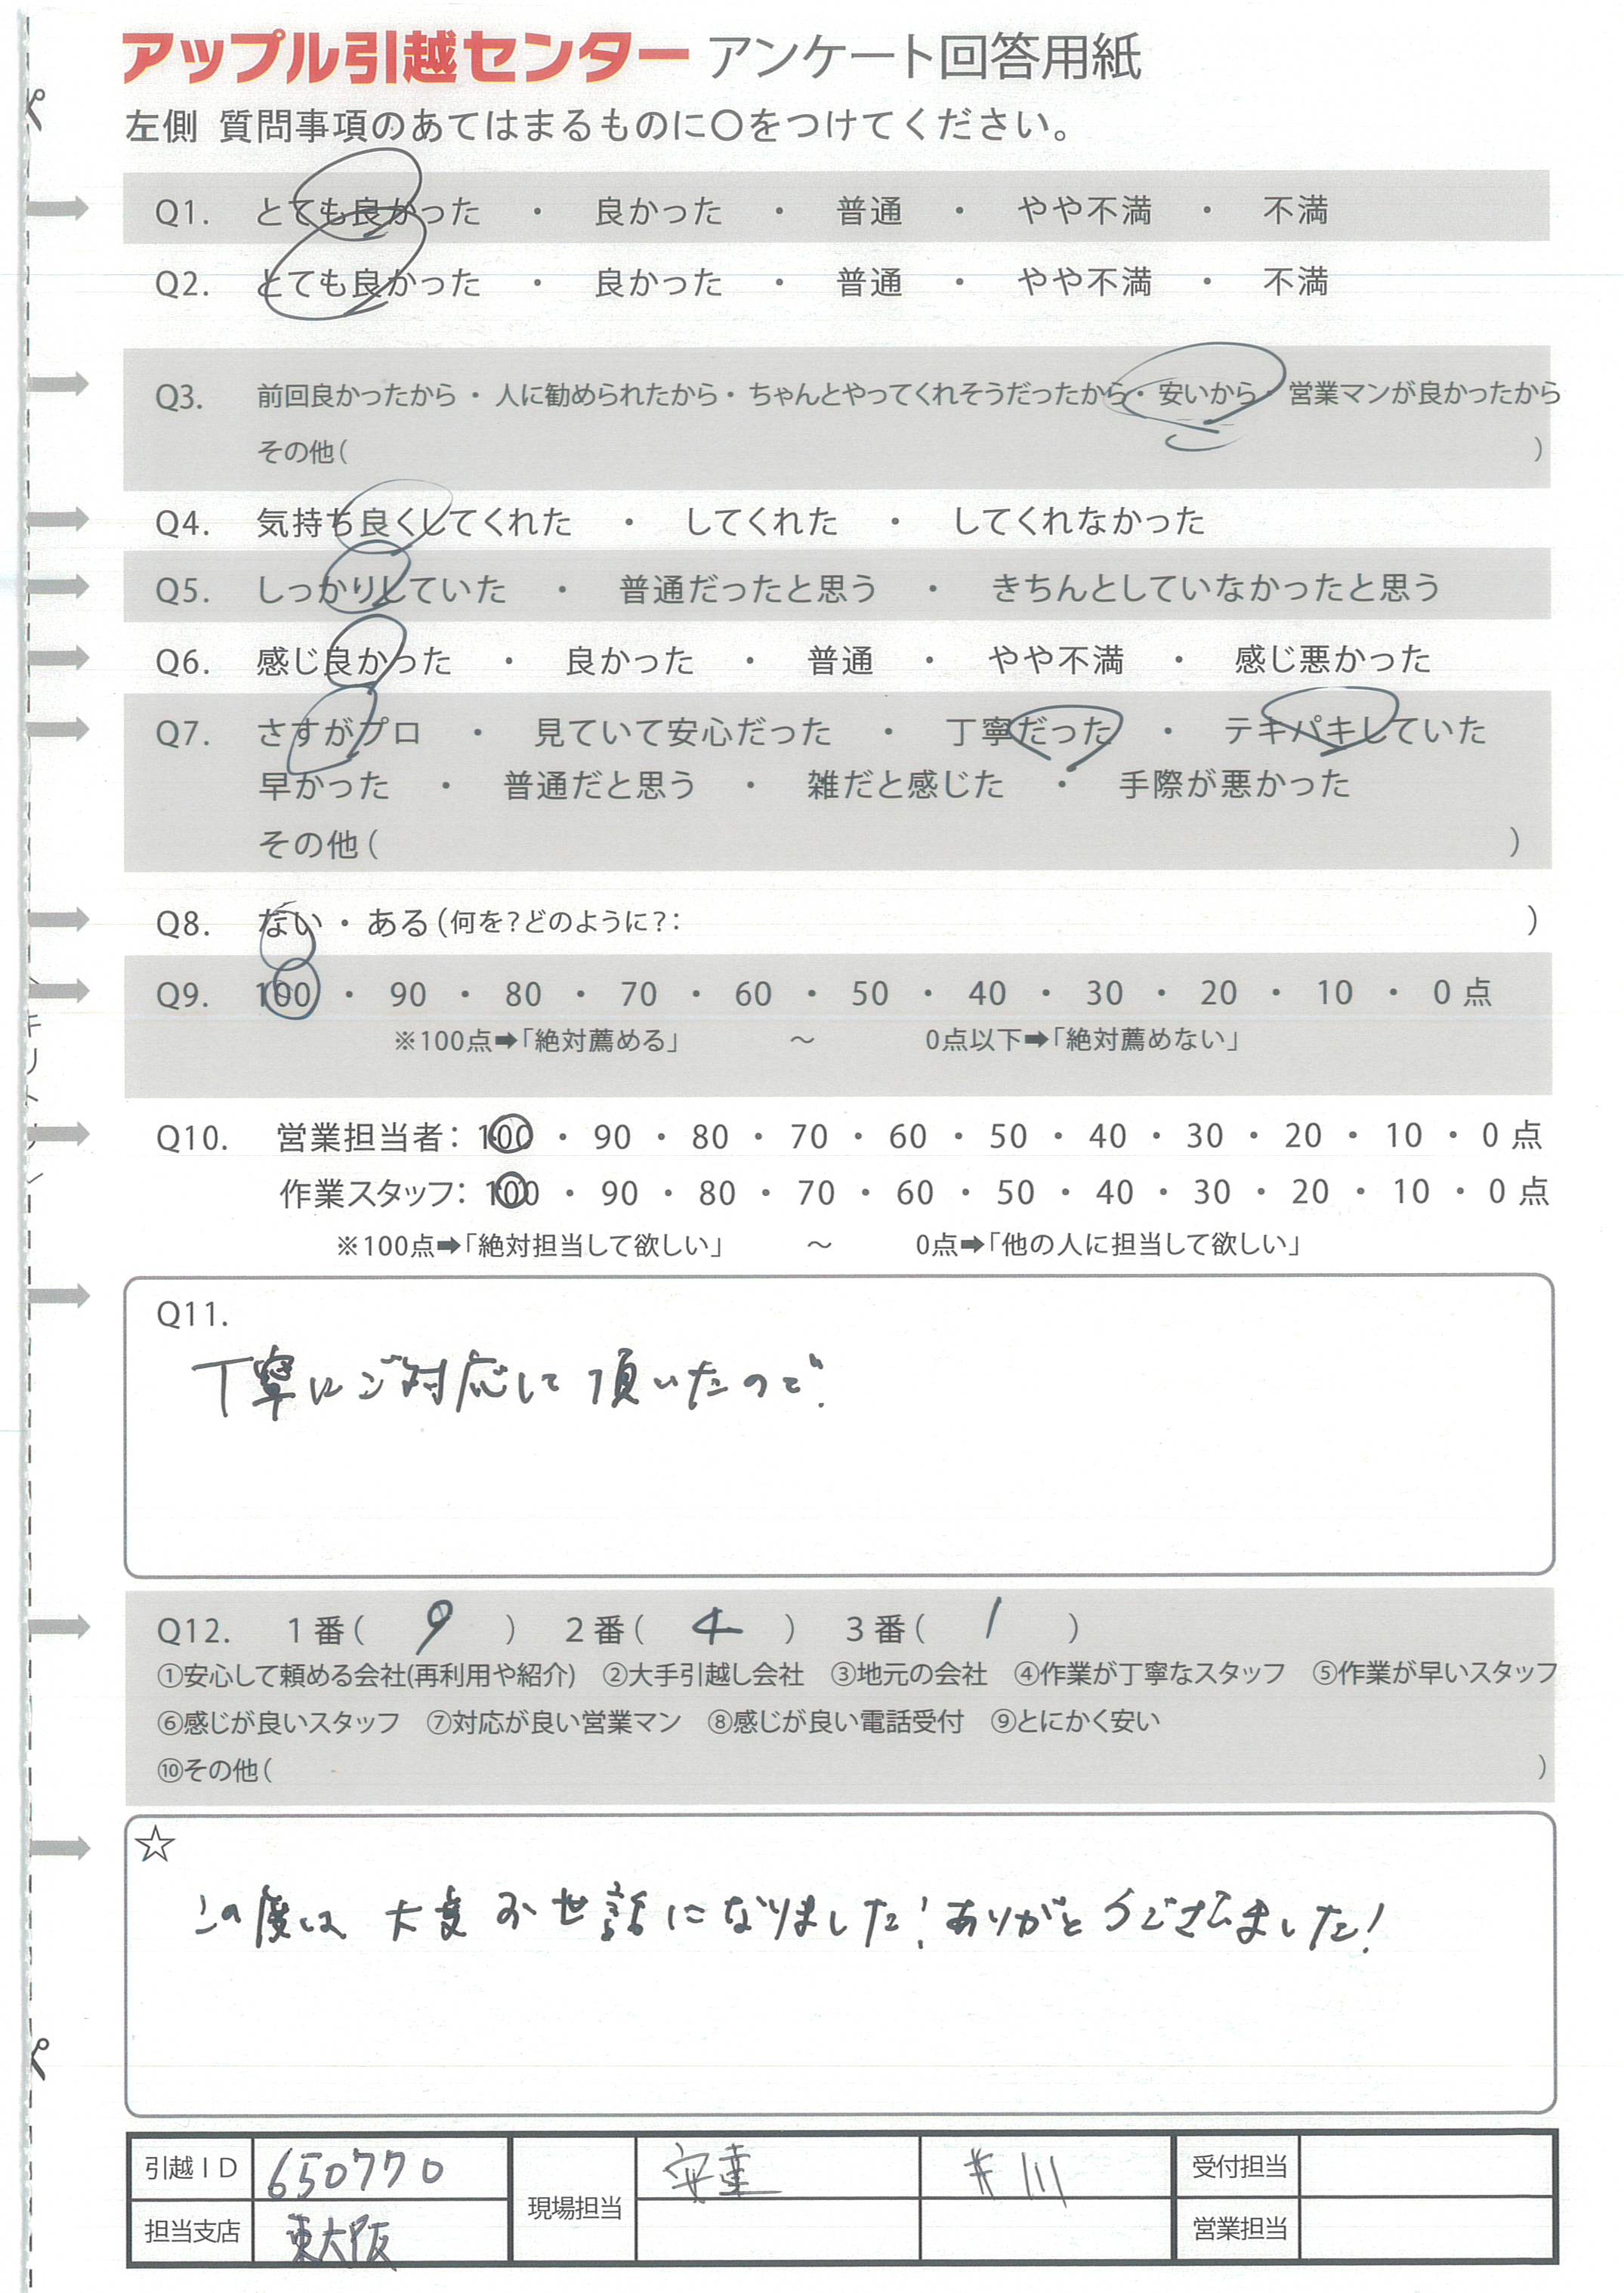 アップル引越センター アンケート回答用紙
左側 質問事項のあてはまるものに〇をつけてください。
Q1. とても良かった ・ 良かった ・ 普通 ・ やや不満 ・ 不満
Q2. とても良かった ・ 良かった ・ 普通 ・ やや不満 ・ 不満
Q3. 前回良かったから・人に勧められたから・ちゃんとやってくれそうだったから・安いから・営業マンが良かったから
その他( )
Q4. 気持ち良くしてくれた ・ してくれた ・ してくれなかった
Q5. しっかりしていた ・ 普通だったと思う ・ きちんとしていなかったと思う
Q6. 感じ良かった ・ 良かった ・ 普通 ・ やや不満 ・ 感じ悪かった
Q7. さすがプロ ・ 見ていて安心だった ・ 丁寧だった ・ テキパキしていた
早かった ・ 普通だと思う ・ 雑だと感じた ・ 手際が悪かった
その他( )
Q8. ない・ある(何を?どのように?: )
Q9. 100 ・ 90 ・ 80 ・ 70 ・ 60 ・ 50 ・ 40 ・ 30 ・ 20 ・ 10 ・ 0 点
※100点➡「絶対薦める」 ～ 0点以下➡「絶対薦めない」
Q10. 営業担当者: 100 ・ 90 ・ 80 ・ 70 ・ 60 ・ 50 ・ 40 ・ 30 ・ 20 ・ 10 ・ 0 点
作業スタッフ: 100 ・ 90 ・ 80 ・ 70 ・ 60 ・ 50 ・ 40 ・ 30 ・ 20 ・ 10 ・ 0 点
※100点➡「絶対担当して欲しい」 ～ 0点➡「他の人に担当して欲しい」
Q11.
丁寧にご対応して頂いたので.
Q12. 1番( 9 ) 2番( 4 ) 3番( 1 )
①安心して頼める会社(再利用や紹介) ②大手引越し会社 ③地元の会社 ④作業が丁寧なスタッフ ⑤作業が早いスタッフ
⑥感じが良いスタッフ ⑦対応が良い営業マン ⑧感じが良い電話受付 ⑨とにかく安い
⑩その他( )
☆
この度は 大変お世話になりました!ありがとうございました!
引越ID 650770 現場担当 安達 井川 受付担当
担当支店 東大阪 営業担当
キリトリ